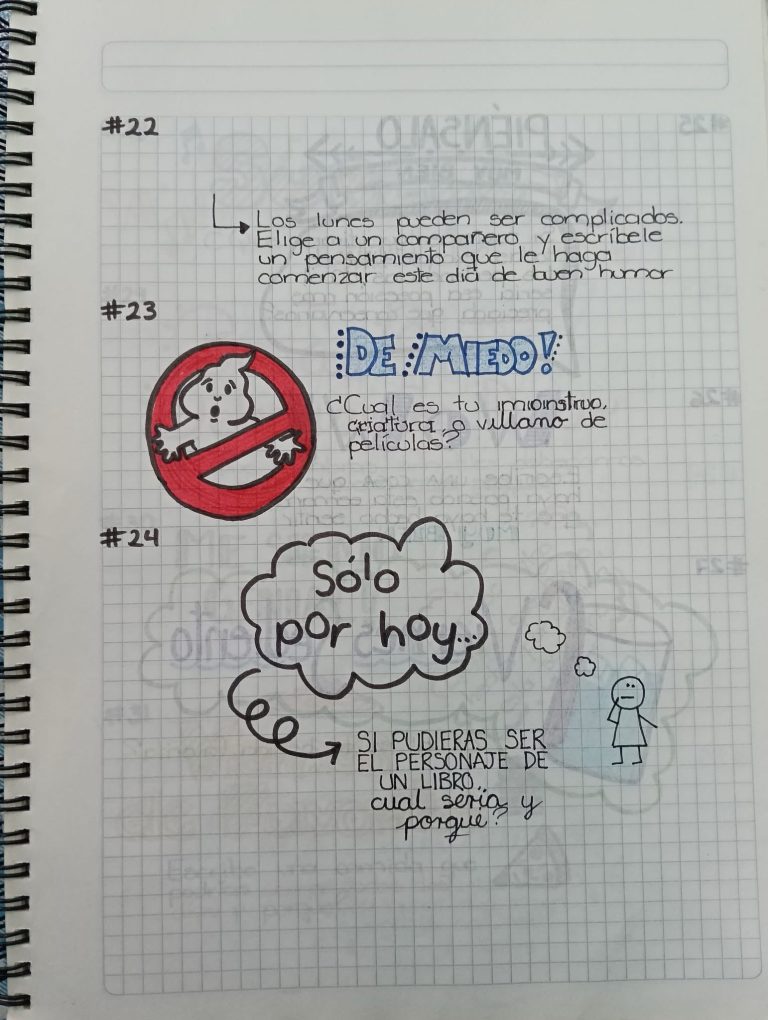 #22
Los lunes pueden ser complicados.
Elige a un compañero y escríbele
un pensamiento que le haga
comenzar este día de buen humor
#23
DE MIEDO!
¿Cual es tu monstruo,
criatura o villano de
películas?
#24
Sólo
por hoy...
SI PUDIERAS SER
EL PERSONAJE DE
UN LIBRO..
cual sería y
porque?
PIÉNSALO
#25
#26
#27